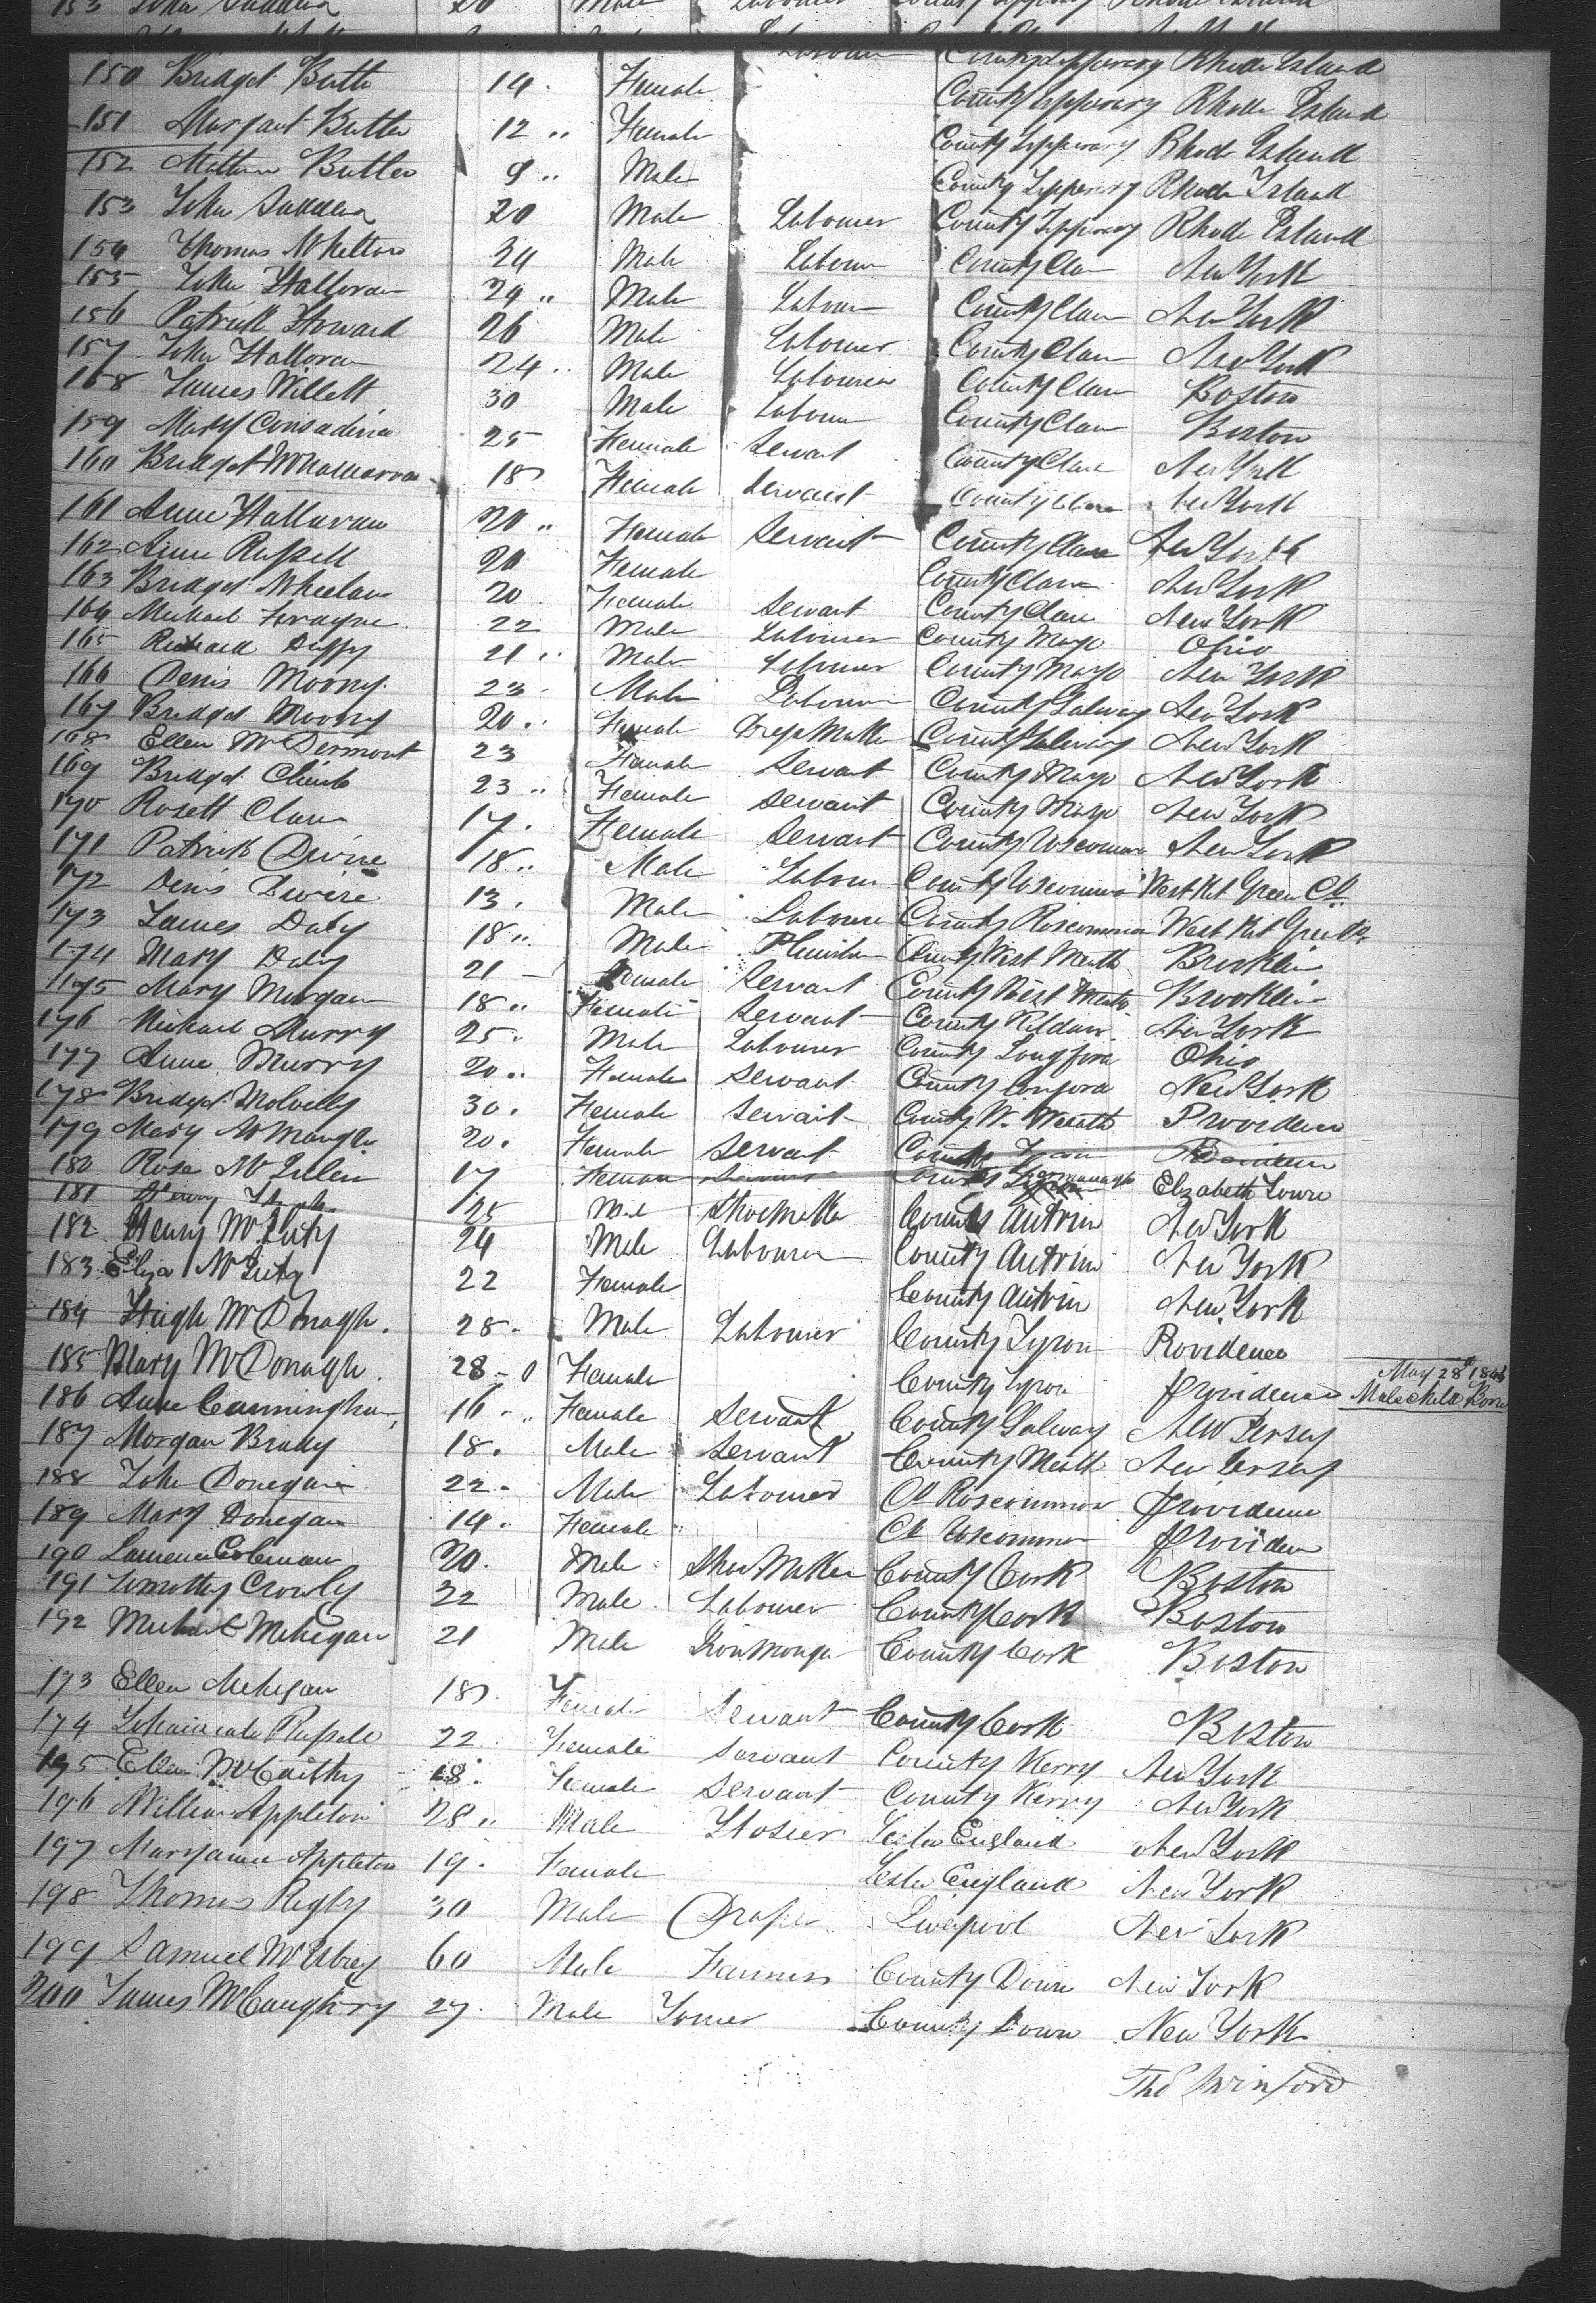 153 John Sadden 20 Male Labourer County Tipperary Rhode Island
Labourer County Tipperary Rhode Island
150 Bridget Butler 14 Female County Tipperary Rhode Island
151 Margaret Butler 12 " Female County Tipperary Rhode Island
152 Mathew Butler 9 " Male County Tipperary Rhode Island
153 John Sadden 20 Male Labourer County Tipperary Rhode Island
154 Thomas Whelton 24 Male Labourer County Clare New York
155 John Halloran 24 " Male Labourer County Clare New York
156 Patrick Howard 26 Male Labourer County Clare New York
157 John Halloran 24 " Male Labourer County Clare Boston
158 James Willett 30 Male Labourer County Clare Boston
159 Mary Consadine 25 Female Servant County Clare New York
160 Bridget McNamarra 18 Female Servant County Clare New York
161 Anne Halloran 20 " Female Servant County Clare New York
162 Anne Russell 20 Female County Clare New York
163 Bridget Wheelan 20 Female Servant County Clare New York
164 Michael 22 Male Labourer County Mayo Ohio
165 Richard Duffy 21 " Male Labourer County Mayo New York
166 Denis Moony 23 Male Labourer County Galway New York
167 Bridget Moony 20 " Female Dress Maker County Galway New York
168 Ellen McDermont 23 Female Servant County Mayo New York
169 Bridget 23 " Female Servant County Mayo New York
170 Rosett Clare 17 Female Servant County Roscommon New York
171 Patrick Divire 18 " Male Labourer County Roscommon West Kt Green Ct
172 Denis Divire 13 Male Labourer County Roscommon West Kt Green Ct
173 James Daly 18 " Male County West Meath Brooklin
174 Mary Daly 21 Female Servant County West Meath Brooklin
175 Mary Morgan 18 " Female Servant County Kildare New York
176 Michael Murry 25 Male Labourer County Longford Ohio
177 Anne Murry 20 " Female Servant County Longford New York
178 Bridget 30 Female Servant County W. Meath Providence
179 Mary 20 Female Servant County Tyrone Providence
180 Rose 17 Female Servant County Elizabeth Town
181 Henry 25 Male Shoemaker County Antrim New York
182 Henry 24 Male Labourer County Antrim New York
183 Eliza 22 Female County Antrim New York
184 Hugh McDonagh 28 Male Labourer County Tyron Providence
185 Mary McDonagh 28 Female County Tyron Providence
May 28th 1846
Male Child Born
186 Anne Cunningham 16 " Female Servant County Galway New Jersey
187 Morgan Brady 18 Male Servant County Meath New Jersey
188 John Donegan 22 Male Labourer Co Roscommon Providence
189 Mary Donegan 14 Female Co Roscommon Providence
190 Lawrence Coleman 20 Male Shoe Maker County Cork Boston
191 Timothy Crowly 22 Male Labourer County Cork Boston
192 Michael Mehegan 21 Male Ironmonger County Cork Boston
193 Ellen Mehegan 18 Female Servant County Cork Boston
194 Russell 22 Female Servant County Kerry New York
195 Ellen McCarthy 18 Female Servant County Kerry New York
196 William Appleton 28 " Male Hosier Lester England New York
197 Maryanne Appleton 19 Female Lester England New York
198 Thomas Rigby 30 Male Draper Liverpool New York
199 Samuel 60 Male Farmer County Down New York
200 James McCaughry 27 Male County Down New York
Thos Winford